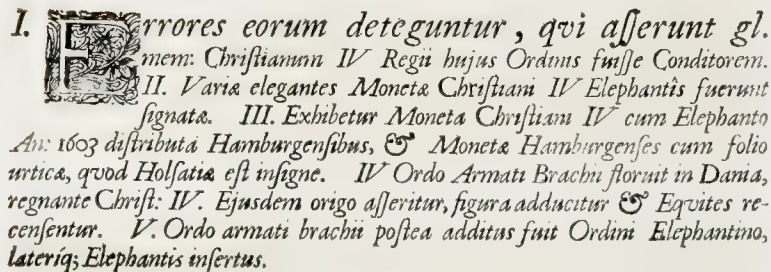 I. Errores eorum deteguntur, qvi aſſerunt gl.
mem: Chriſtianum IV Regii hujus Ordinis fuiſſe Conditorem.
II. Variæ elegantes Monetæ Chriſtiani IV Elephantis fuerunt
ſignatæ. III. Exhibetur Moneta Chriſtiani IV cum Elephanto
An: 1603 diſtributa Hamburgenſibus, & Monetæ Hamburgenſes cum folio
urticæ, qvod Holſatiæ eſt inſigne. IV Ordo Armati Brachii floruit in Dania,
regnante Chriſt: IV. Ejusdem origo aſſeritur, figura adducitur & Eqvites re-
cenſentur. V. Ordo armati brachii poſtea additus fuit Ordini Elephantino,
lateriq; Elephantis inſertus.